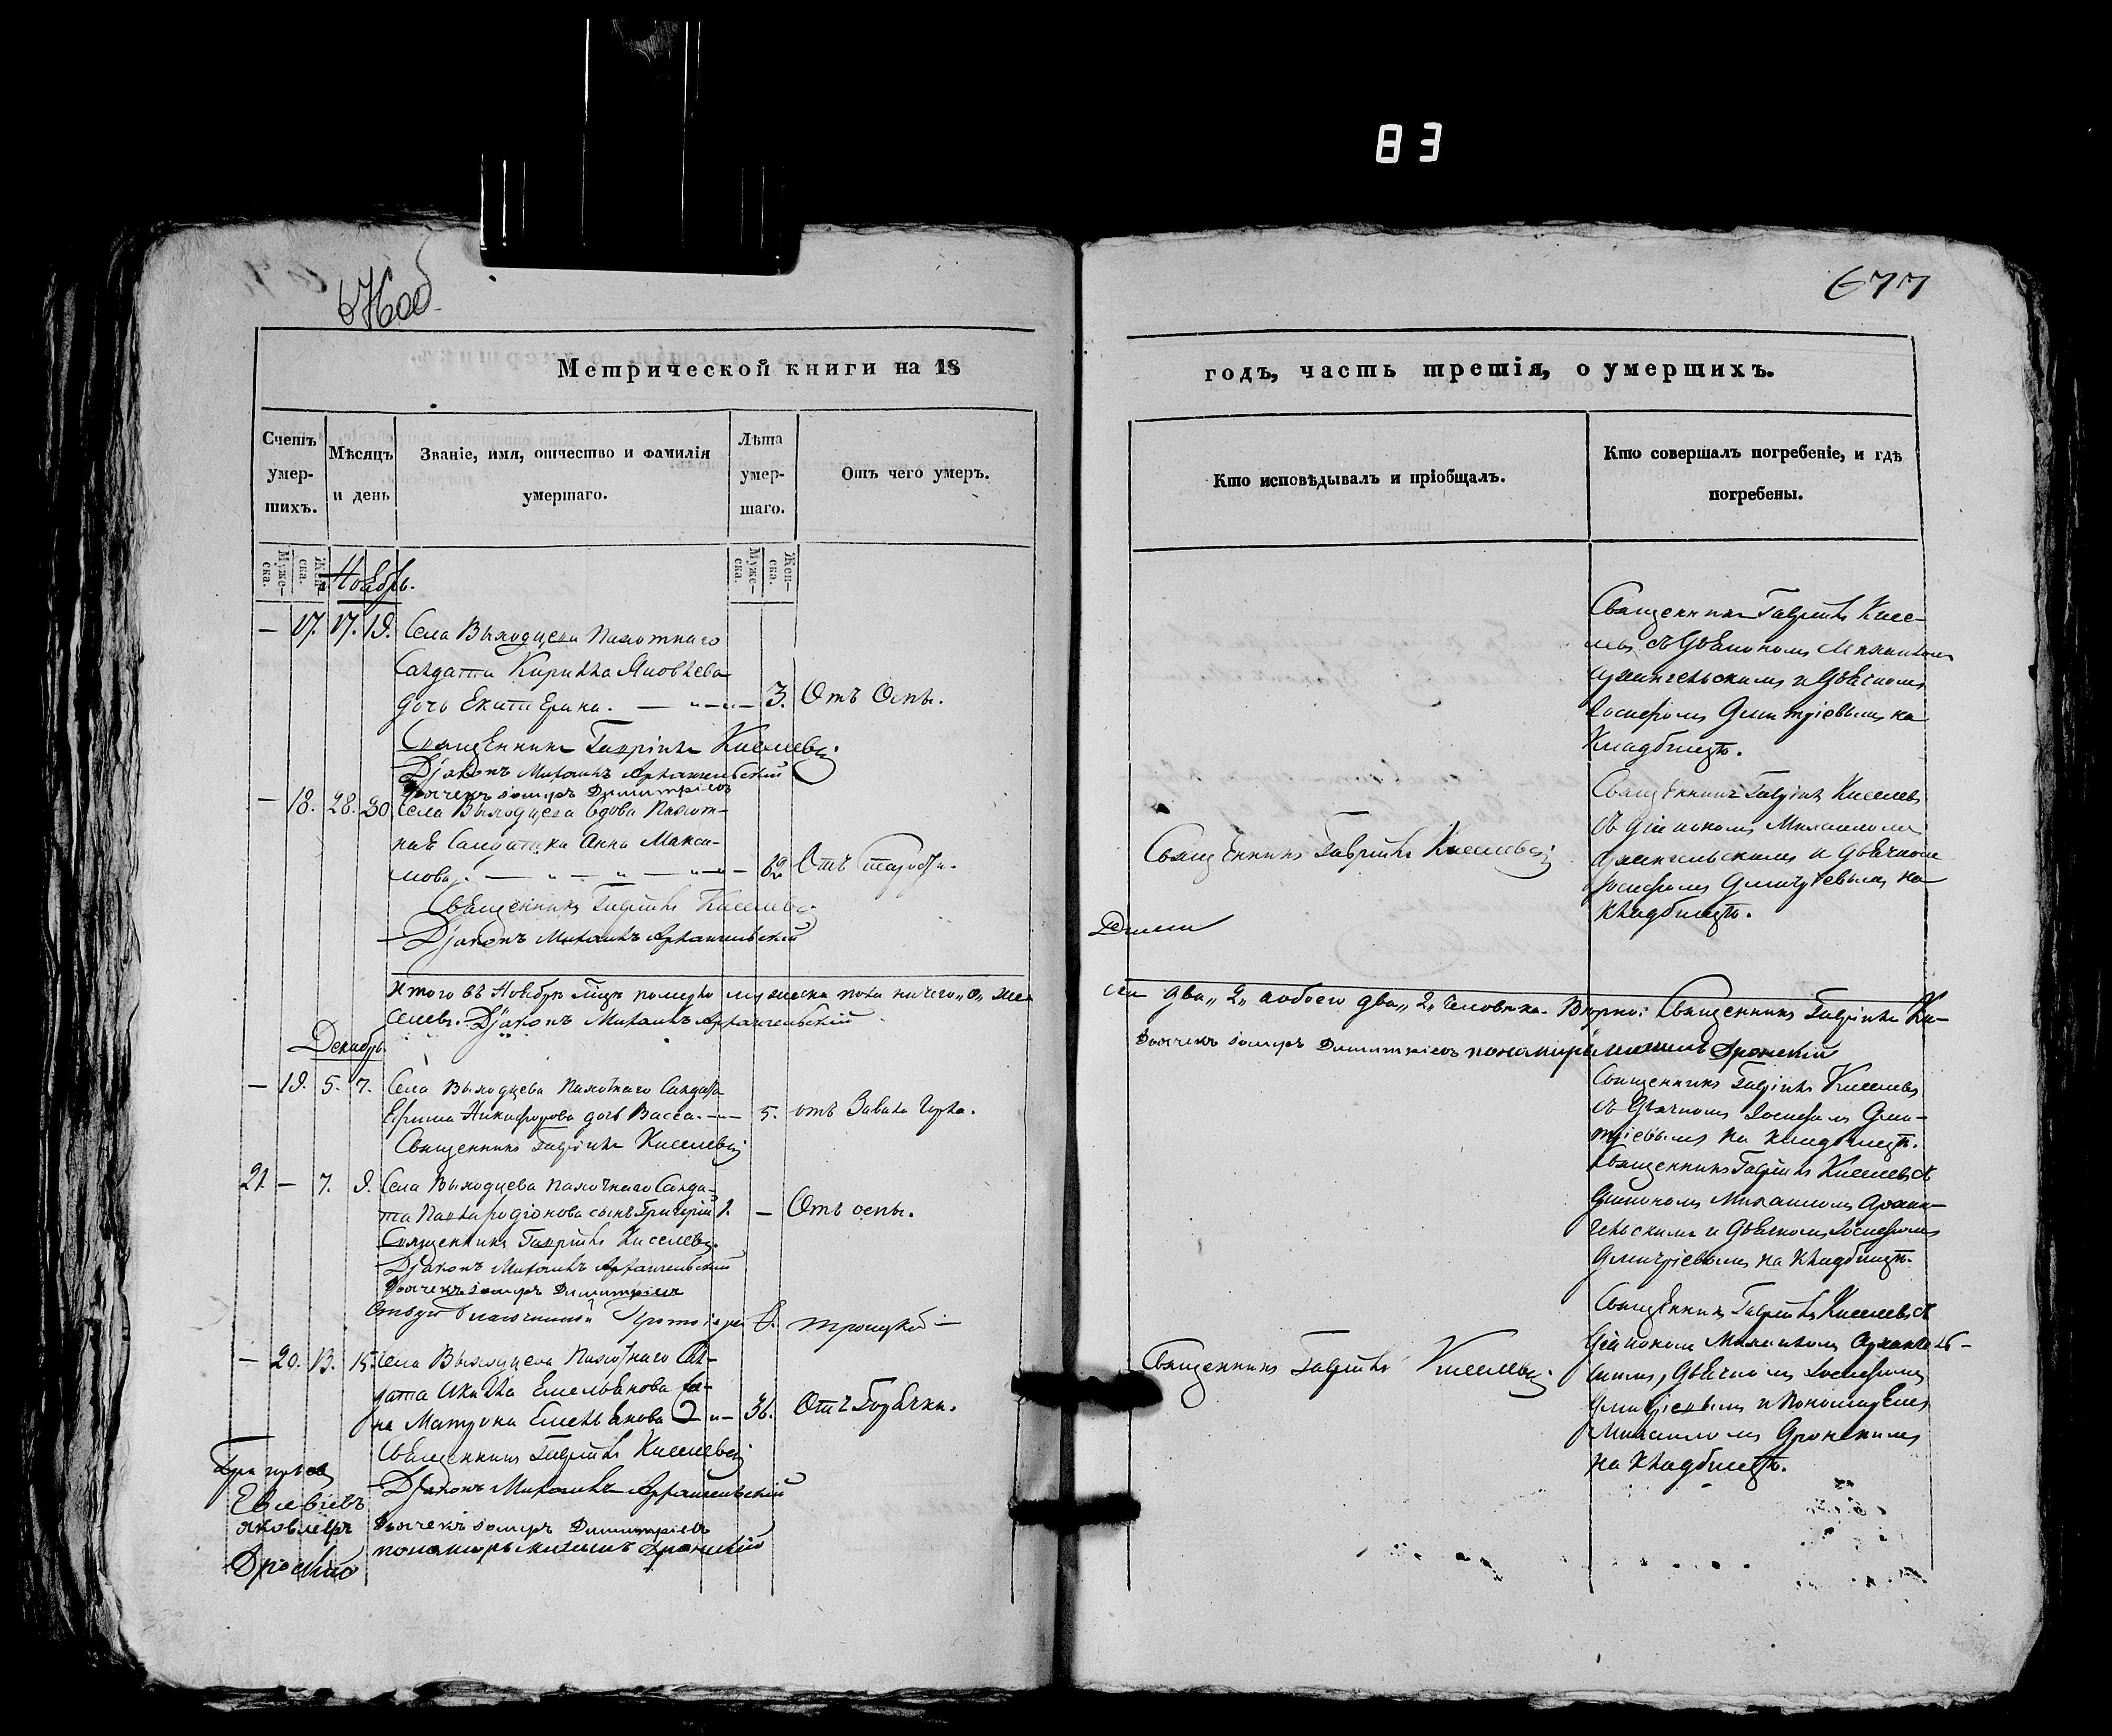 83
676 об
677
Метрической книги на 18
годъ, часть третія, о умершихъ.
Счетъ умер-шихъ.
Мѣсяцъ и день
Званіе, имя, отчество и фамилія умершаго.
Лѣта умер-шаго.
Отъ чего умеръ.
Кто исповѣдывалъ и пріобщалъ.
Кто совершалъ погребеніе, и гдѣ погребены.
Муже-ска.
Жен-ска.
Муже-ска.
Жен-ска.
Ноябрь.
— 17. 17. 19. Села Выходцева Пахотнаго
Салдата Кирилла Яковлева
дочь Екатерина. — 3. Отъ Оспы.
Священникъ Гавріилъ Киселевъ
Діаконъ Михаилъ Архангельскій
Дьячекъ Іосифъ Димитріевъ
Священникъ Гавріилъ Кисе-
левъ съ Діакономъ Михаиломъ
Архангельскимъ и Дьячкомъ
Іосифомъ Дмитріевымъ на
Кладбищѣ.
— 18. 28. 30 Села Выходцева вдова Пахот-
ная Салдатка Анна Макси-
мова. — 62 Отъ старости.
Священникъ Гавріилъ Киселевъ
Діаконъ Михаилъ Архангельскій
Священникъ Гавріилъ Киселевъ
Священникъ Гавріилъ Киселевъ
съ Діакономъ Михаиломъ
Архангельскимъ и Дьячкомъ
Іосифомъ Дмитріевымъ на
Кладбищѣ.
Итого въ Ноябрѣ м-цѣ померло мужеска пола ничего „0„ жен
ска два „2„ а обоего два „2„ человѣка. Вѣрно: Священникъ Гавріилъ Ки-
селевъ. Діаконъ Михаилъ Архангельскій
Дьячекъ Іосифъ Димитріевъ пономарь Михаилъ Дронскій
Декабрь
— 19. 5. 7. Села Выходцева Пахотнаго Салдата
Ефима Никифорова дочь Васса. — 5. отъ
Священникъ Гавріилъ Киселевъ
Священникъ Гавріилъ Киселевъ
съ Дьячкомъ Іосифомъ Дми-
тріевымъ на кладбищѣ.
21. — 7. 9. Села Выходцева Пахотнаго Салда-
та Павла Родіонова сынъ Григорій 1. — Отъ оспы.
Священникъ Гавріилъ Киселевъ.
Діаконъ Михаилъ Архангельскій
Дьячекъ Іосифъ Димитріевъ
Священникъ Гавріилъ Киселевъ съ
Діакономъ Михаиломъ Архан-
гельскимъ и Дьячкомъ Іосифомъ
Дмитріевымъ на Кладбищѣ.
благочинный Протоіерей Троицкій
— 20. 13. 15. Села Выходцева Пахотнаго Сал-
дата Емельянова
на Матрона Емельянова — 36. Отъ Горячки.
Священникъ Гавріилъ Киселевъ
Діаконъ Михаилъ Архангельскій
Дьячекъ Іосифъ Димитріевъ
пономарь Михаилъ Дронскій
Священникъ Гавріилъ Киселевъ
Священникъ Гавріилъ Киселевъ съ
Діакономъ Михаиломъ Архангель-
скимъ, Дьячкомъ Іосифомъ
Дмитріевымъ и Пономаремъ
Михаиломъ Дронскимъ
на Кладбищѣ.